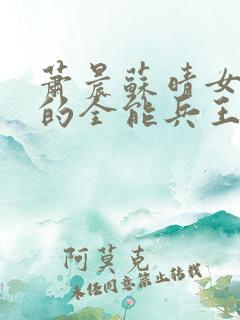 蕭晨蘇晴女
的全能兵王
阿莫克
未经同意禁止转载